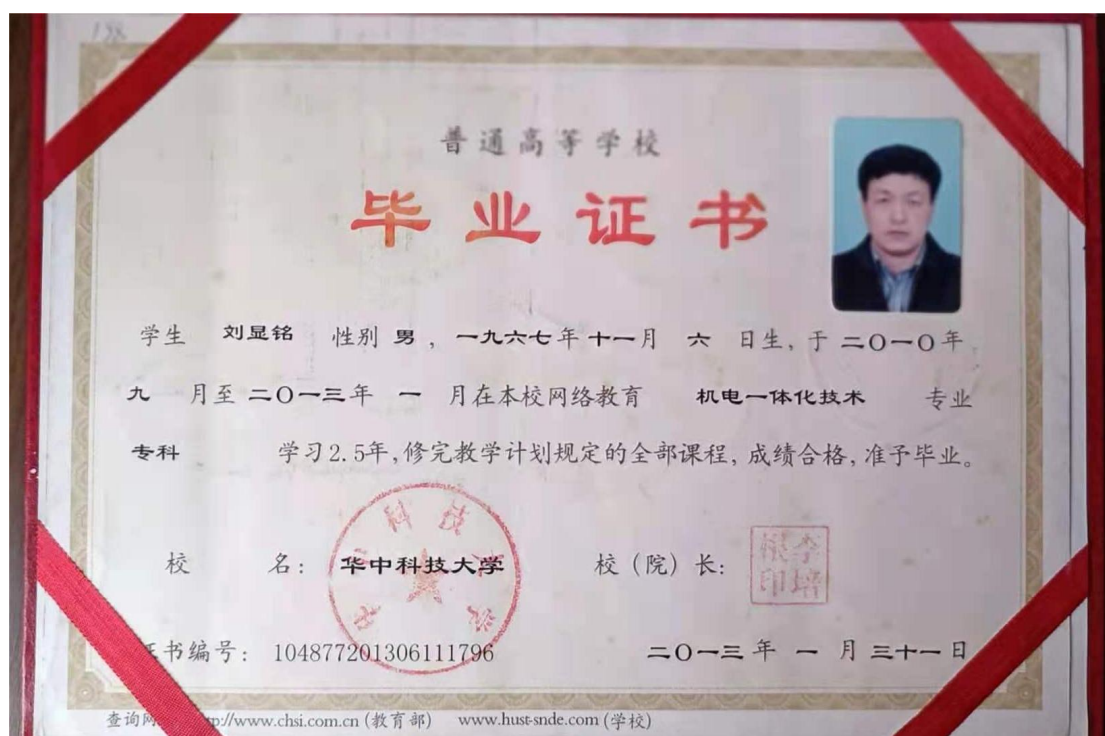 188
普通高等学校
毕业证书
学生 刘显铭 性别 男，一九六七年十一月 六 日生，于二〇一〇年
九 月至二〇一三年 一 月在本校网络教育 机电一体化技术 专业
专科 学习2.5年，修完教学计划规定的全部课程，成绩合格，准予毕业。
校 名：华中科技大学 校（院）长：李培根印
书编号：104877201306111796 二〇一三年 一 月三十一日
查询网 tp://www.chsi.com.cn (教育部) www.hust-snde.com (学校)